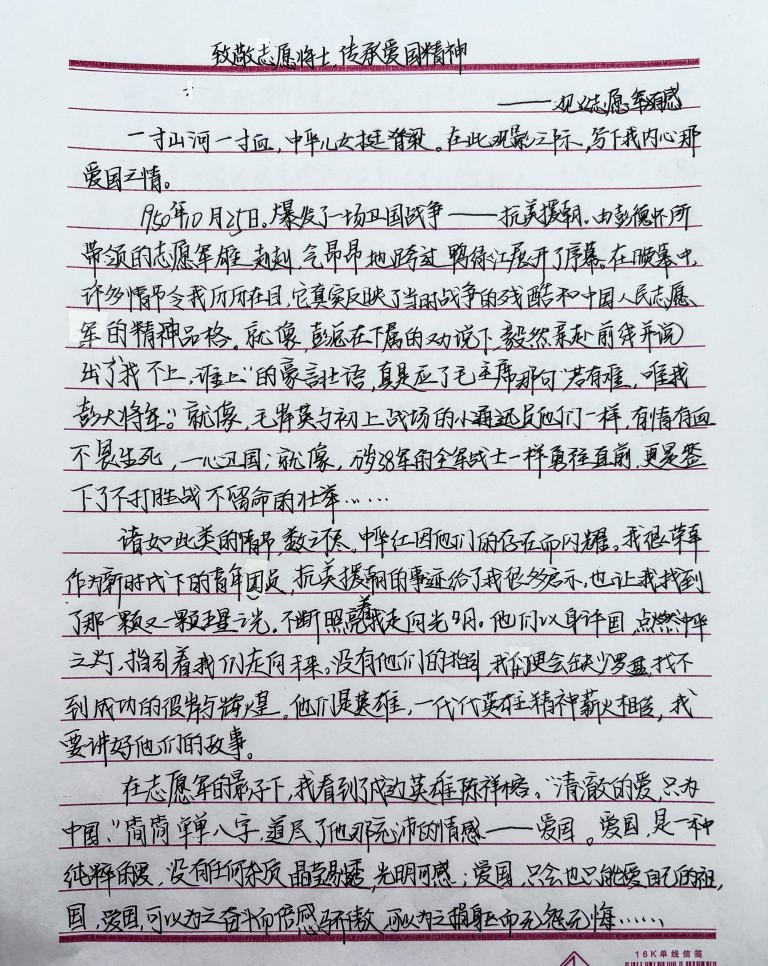 致敬志愿将士 传承爱国精神
——观《志愿军》有感
一寸山河一寸血,中华儿女挺脊梁。在此观影之际,写下我内心那
爱国之情。
1950年10月25日。爆发了一场卫国战争——抗美援朝。由彭德怀所
带领的志愿军雄赳赳,气昂昂地跨过鸭绿江展开了序幕。在映幕中,
许多情节令我历历在目,它真实反映了当时战争的残酷和中国人民志愿
军的精神品格。就像,彭总在下属的劝说下,毅然亲赴前线并说
出了"我不上,谁上"的豪言壮语,真是应了毛主席那句"若有难,唯我
彭大将军。"就像,毛岸英与初上战场的小通迅员他们一样,有情有血
不畏生死,一心卫国;就像,38军的全军战士一样勇往直前,更是签
下了不打胜战不留命的壮举……
诸如此类的情节,数之不尽。中华红因他们的存在而闪耀。我很荣幸
作为新时代下的青年团员,抗美援朝的事迹给了我很多启示,也让我找到
了那一颗又一颗星之光,不断照亮着我走向光明。他们以身许国,点燃中华
之灯,指引着我们走向未来。没有他们的指引,我们便会缺少罗盘,找不
到成功的彼岸与辉煌。他们是英雄,一代代英雄精神薪火相传,我
要讲好他们的故事。
在志愿军的影子下,我看到了戍边英雄陈祥榕。"清澈的爱,只为
中国,"简简单单八字,道尽了他那充沛的情感——爱国。爱国,是一种
纯粹的爱,没有任何杂质,晶莹易透,光明可感;爱国,只会也只能爱自己的祖
国,爱国,可以为之奋斗而倍感骄傲,可以为之捐躯而无怨无悔……
16K单线信笺